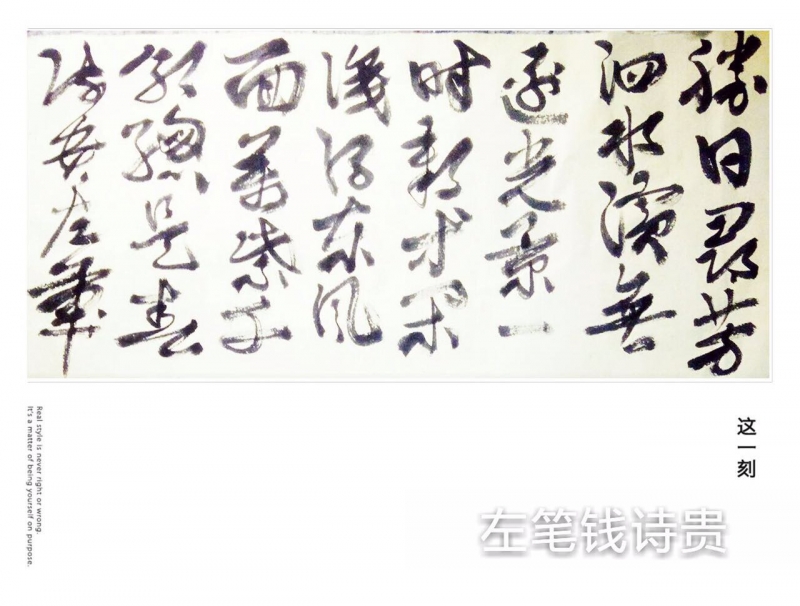 勝日尋芳
泗水濱無
邊光景一
时新等闲
識得东风
面萬紫千
红總是春
诗贵左筆
这一刻
左笔钱诗贵
Real style is never right or wrong.
It's a matter of being yourself on purpose.